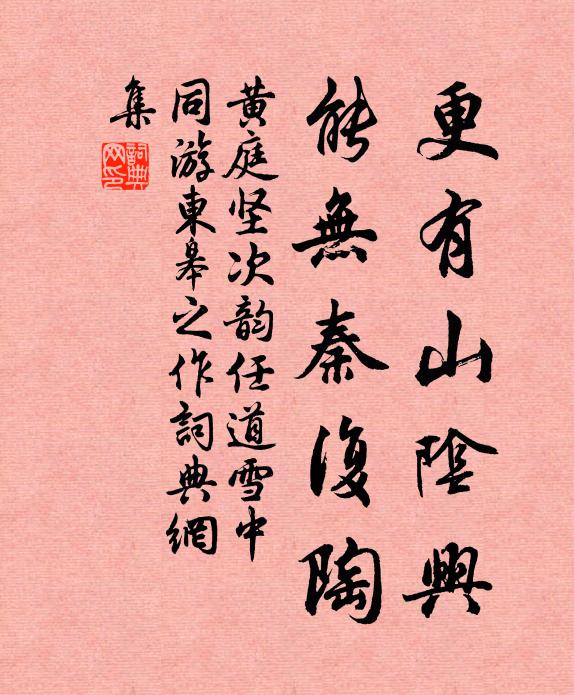 更有山陰興
能無秦復陶
黄庭坚次韵任道雪中
同游東皋之作詞典網
集
詞典
网印